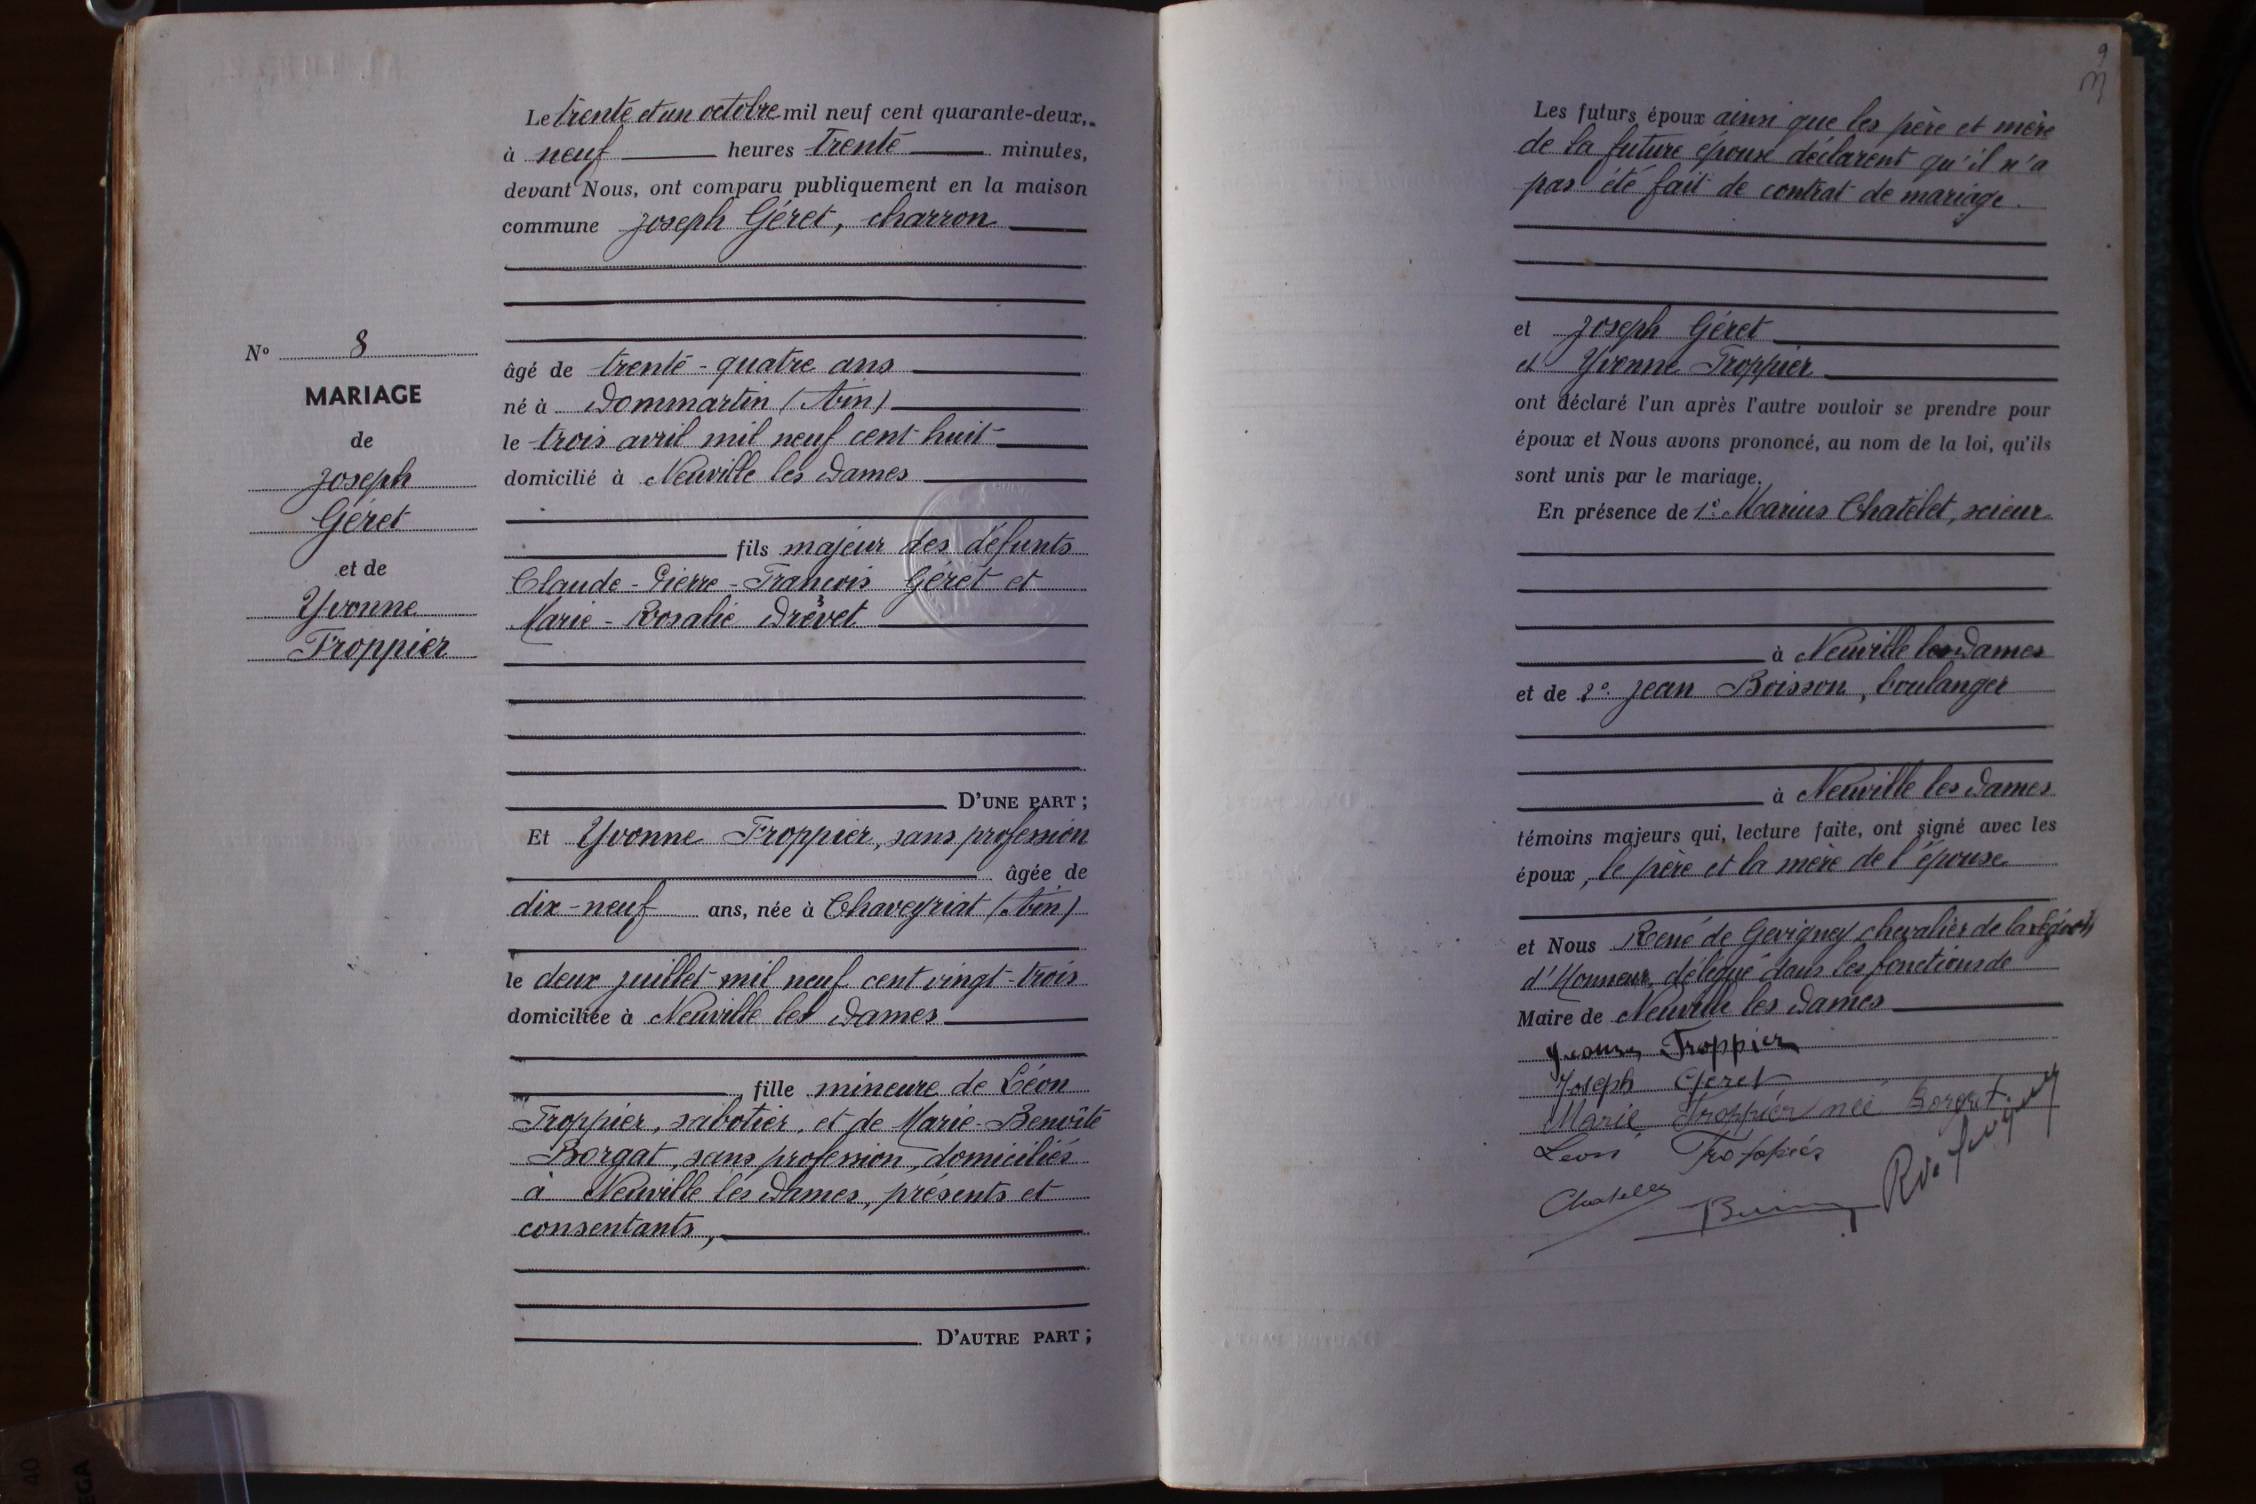 Le trente et un octobre mil neuf cent quarante-deux,
à neuf heures trente minutes,
devant Nous, ont comparu publiquement en la maison
commune Joseph Géret, charron
âgé de trente-quatre ans
né à Dommartin (Ain)
le trois avril mil neuf cent huit
domicilié à Neuville les Dames
fils majeur des défunts
Claude-Pierre-François Géret et
Marie-Rosalie Drevet
D'UNE PART ;
Et Yvonne Froppier, sans profession
âgée de
dix-neuf ans, née à Chaveyriat (Ain)
le deux juillet mil neuf cent vingt-trois
domiciliée à Neuville les Dames
, fille mineure de Léon
Froppier, sabotier, et de Marie-Benoîte
Borgat, sans profession, domiciliés
à Neuville les Dames, présents et
consentants,
D'AUTRE PART ;
N° 8
MARIAGE
de
Joseph
Géret
et de
Yvonne
Froppier
9
Les futurs époux ainsi que les père et mère
de la future épouse déclarent qu'il n'a
pas été fait de contrat de mariage.
et Joseph Géret
et Yvonne Froppier
ont déclaré l'un après l'autre vouloir se prendre pour
époux et Nous avons prononcé, au nom de la loi, qu'ils
sont unis par le mariage.
En présence de 1° Marius Chatelet, scieur
à Neuville les Dames
et de 2° Jean Boisson, boulanger
à Neuville les Dames
témoins majeurs qui, lecture faite, ont signé avec les
époux, le père et la mère de l'épouse
et Nous René de Gevigney chevalier de la Légion
d'Honneur, délégué dans les fonctions de
Maire de Neuville les Dames
Yvonne Froppier
Joseph Géret
Marie Froppier née Borgat
Léon Froppier
Chatelet
40